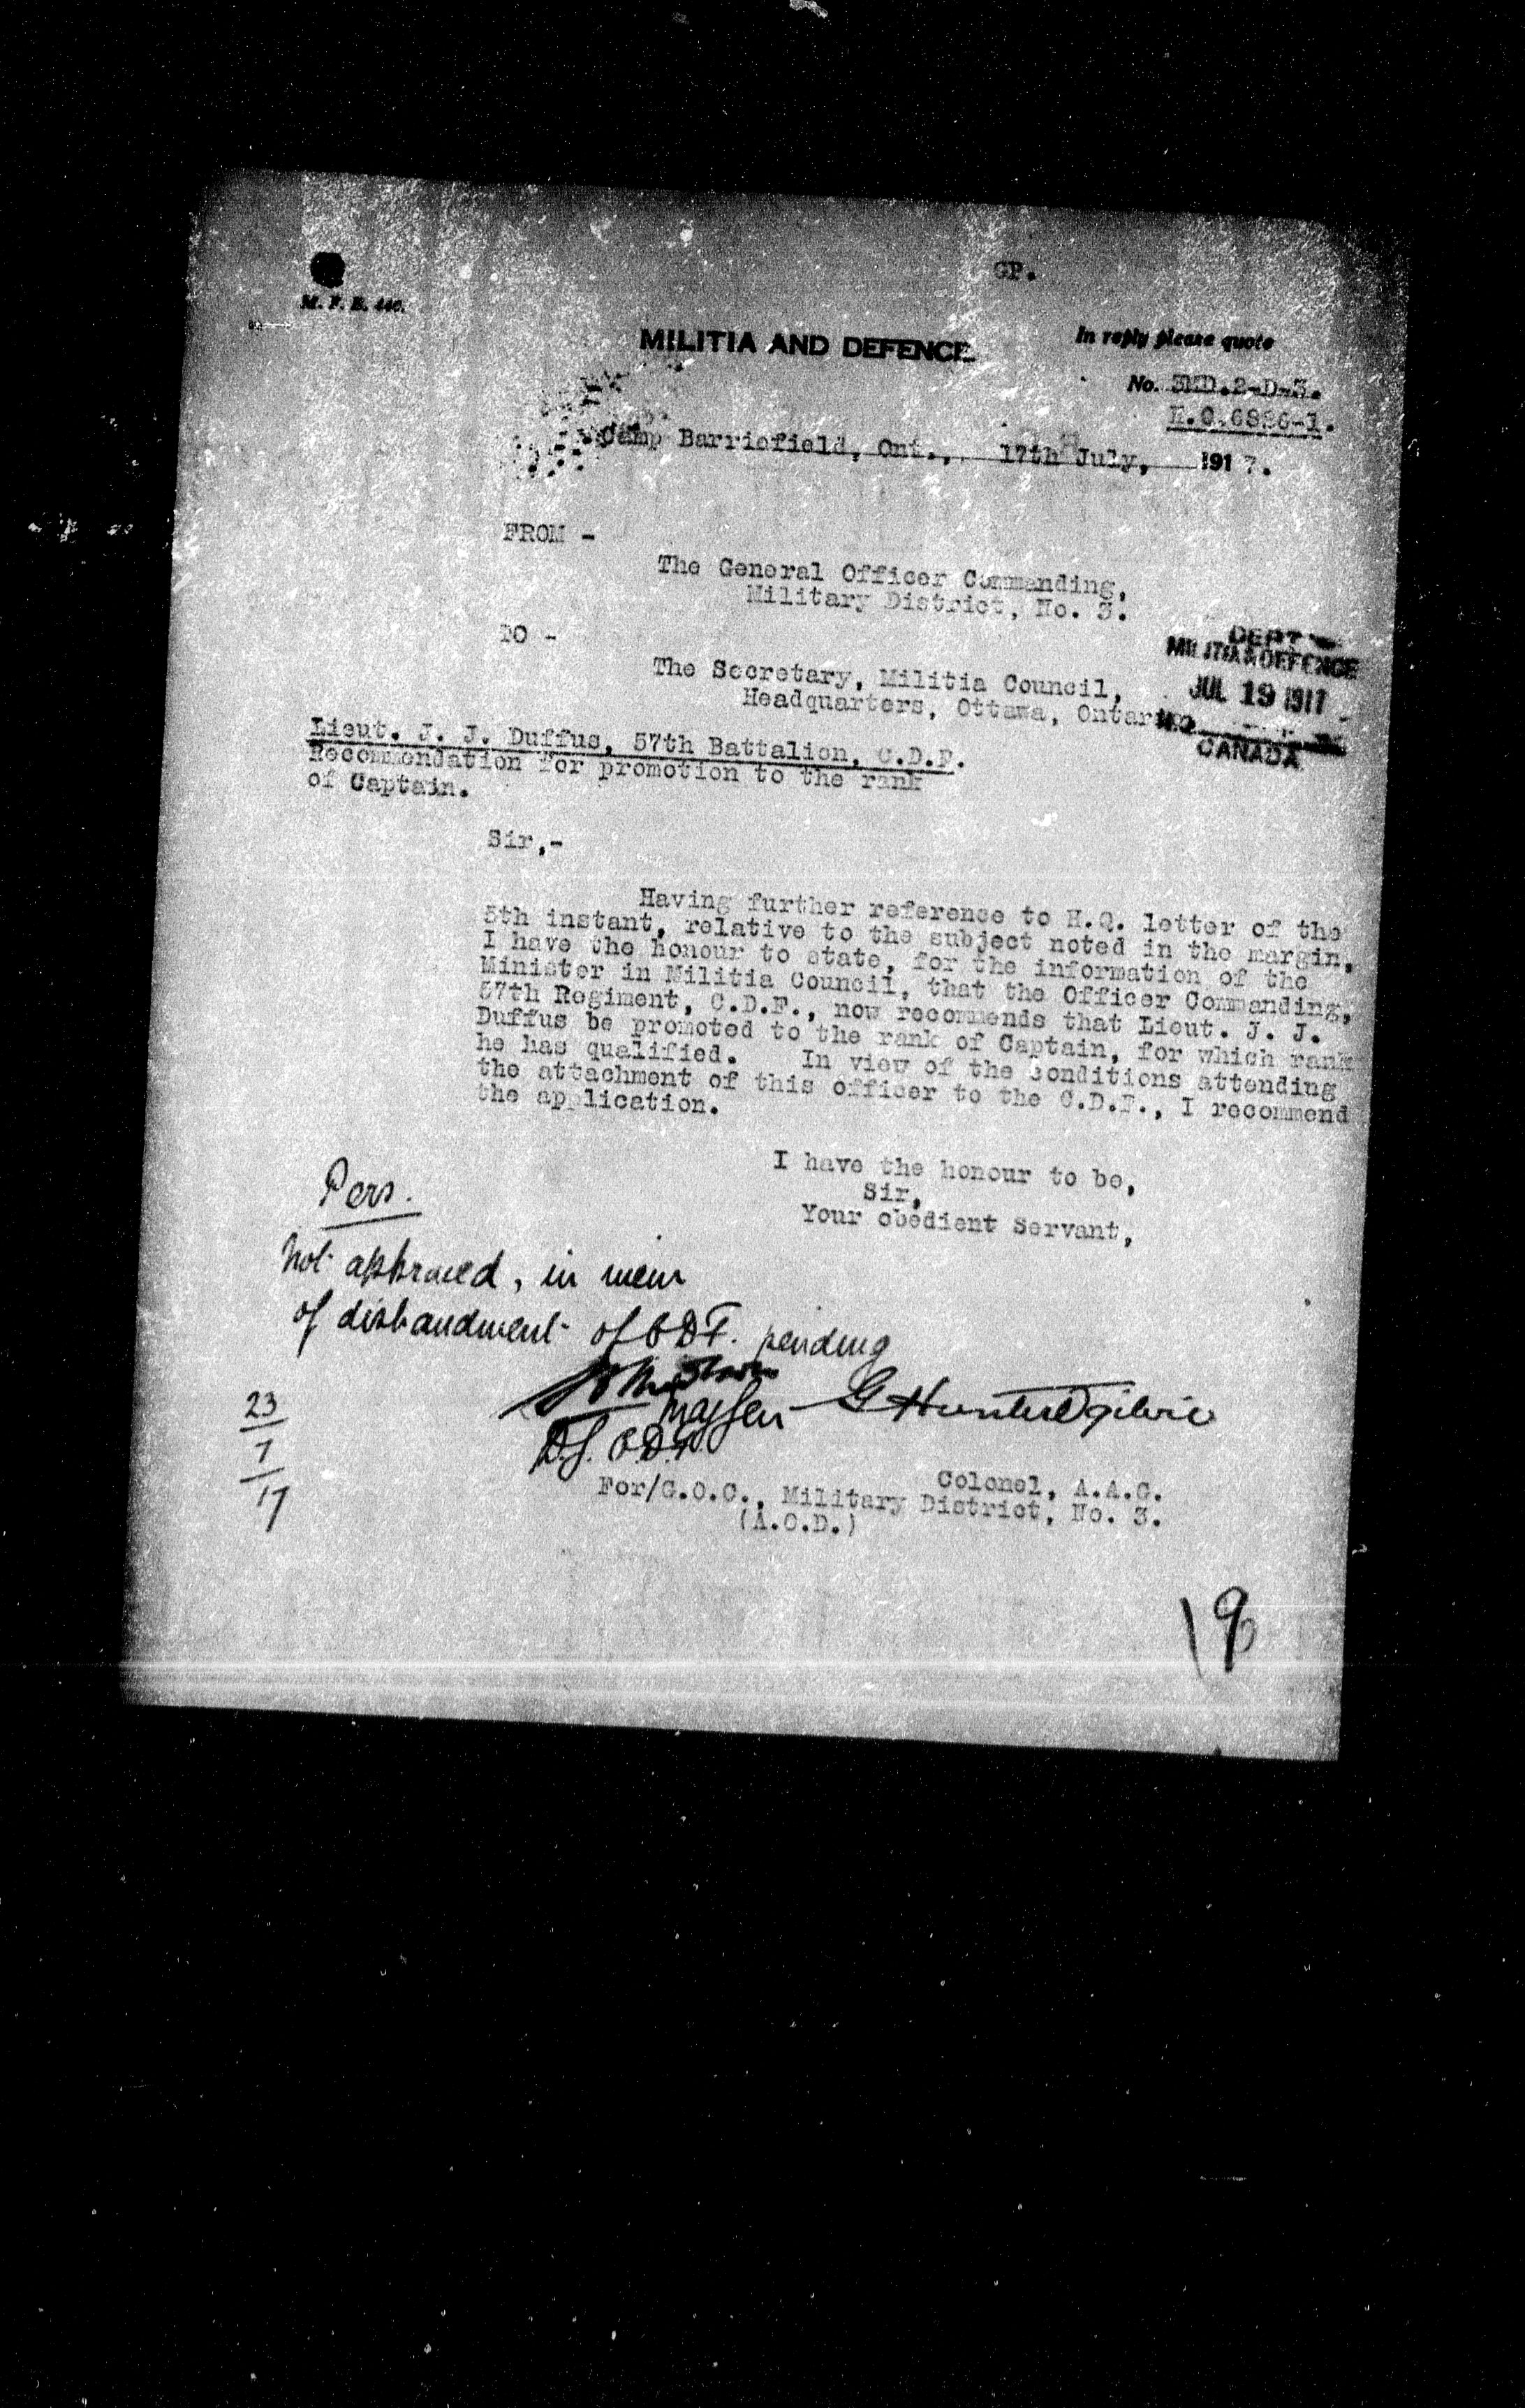 GP.
M. F. B. 440.
MILITIA AND DEFENCE
In reply please quote
No. 3MD.2-D-3.
H.Q.6826-1.
Camp Barriefield, Ont., 17th July, 1917.
FROM -
The General Officer Commanding,
Military District, No. 3.
TO -
The Secretary, Militia Council,
Headquarters, Ottawa, Ontario
DEPT
MILITIA & DEFENCE
JUL 19 1917
H.Q.
CANADA
Lieut. J. J. Duffus, 57th Battalion, C.D.F.
Recommendation for promotion to the rank
of Captain.
Sir,-
Having further reference to H.Q. letter of the
5th instant, relative to the subject noted in the margin,
I have the honour to state, for the information of the
Minister in Militia Council, that the Officer Commanding,
57th Regiment, C.D.F., now recommends that Lieut. J. J.
Duffus be promoted to the rank of Captain, for which rank
he has qualified. In view of the conditions attending
the attachment of this officer to the C.D.F., I recommend
the application.
I have the honour to be,
Sir,
Your obedient Servant,
Pers.
Not approved, in view
of disbandment of CDF. pending
Maj Gen
D.G. C.D.F.
G Hunter Ogilvie
23
7
17
Colonel, A.A.G.
For/G.O.C., Military District, No. 3.
(A.O.D.)
19